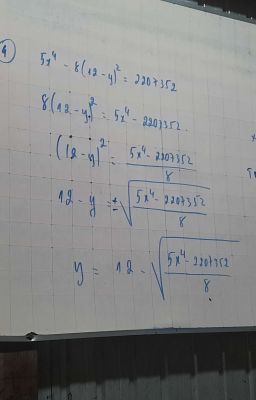 4
5x⁴ - 8(12-y)² = 2207352
8(12-y)² = 5x⁴ - 2207352
(12-y)² = (5x⁴ - 2207352)/8
12 - y = ±√((5x⁴ - 2207352)/8)
y = 12 - √((5x⁴ - 2207352)/8)